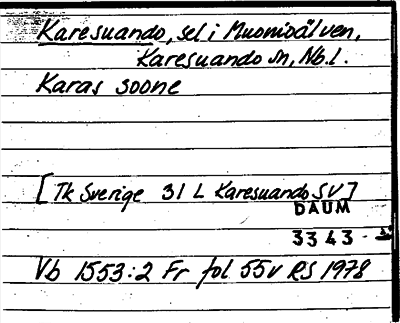 Karesuando, sel i Muonioälven,
Karesuando sn, Nb.l.
Karas soone
[Tk Sverige 31 L Karesuando SV]
DAUM
3343
Vb 1553:2 Fr fol 55v RS 1978